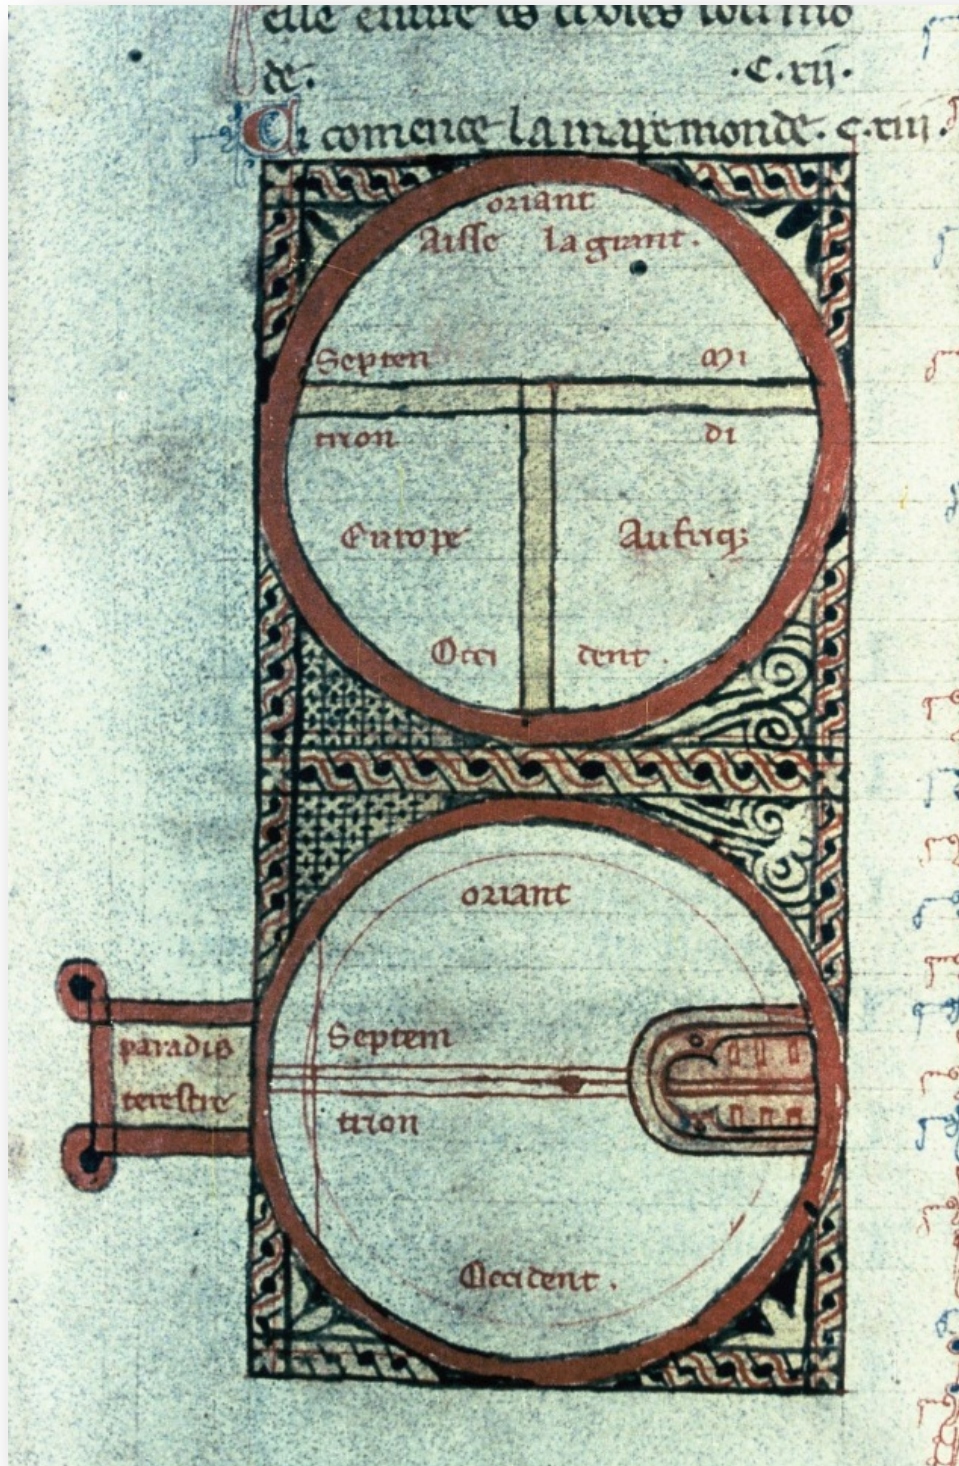 de. .C.xii.
Ci comence lamapemonde. C.xiii.
oriant
Aisse lagrant.
Septen mi
trion di
Europe Aufriq;
Occi dent.
oriant
Septem
paradis
terestre
trion
Occident.